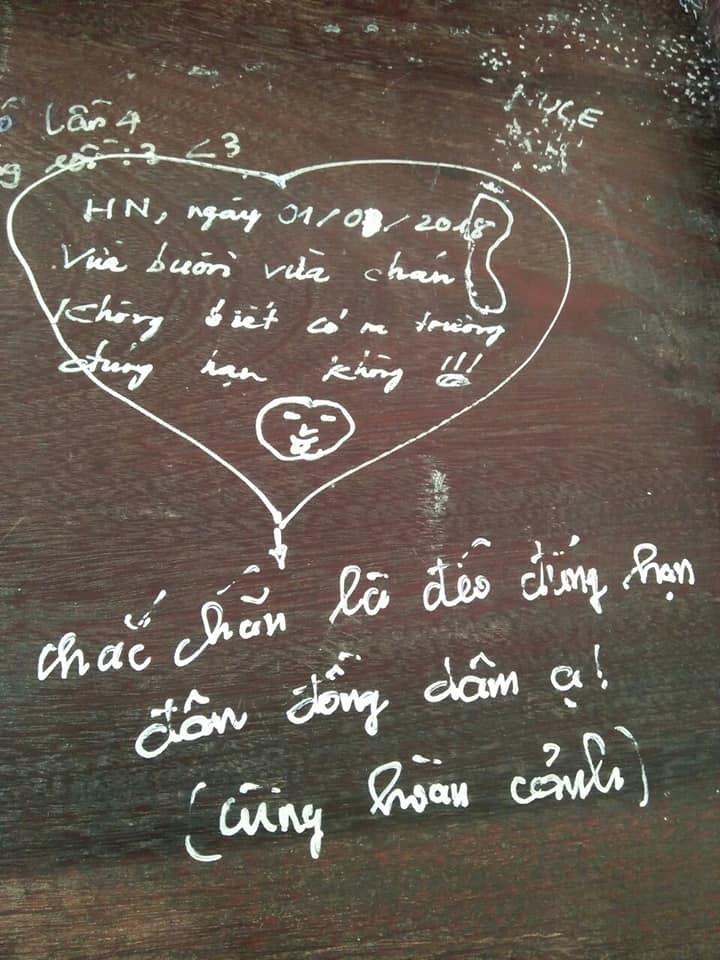 lần 4
<3
HN, ngày 01/03/2018
Vừa buồn vừa chán
Không biết có ra trường
đúng hạn không !!!
chắc chắn là đéo đúng hạn
đâu đồng dâm ạ!
(cùng hoàn cảnh)